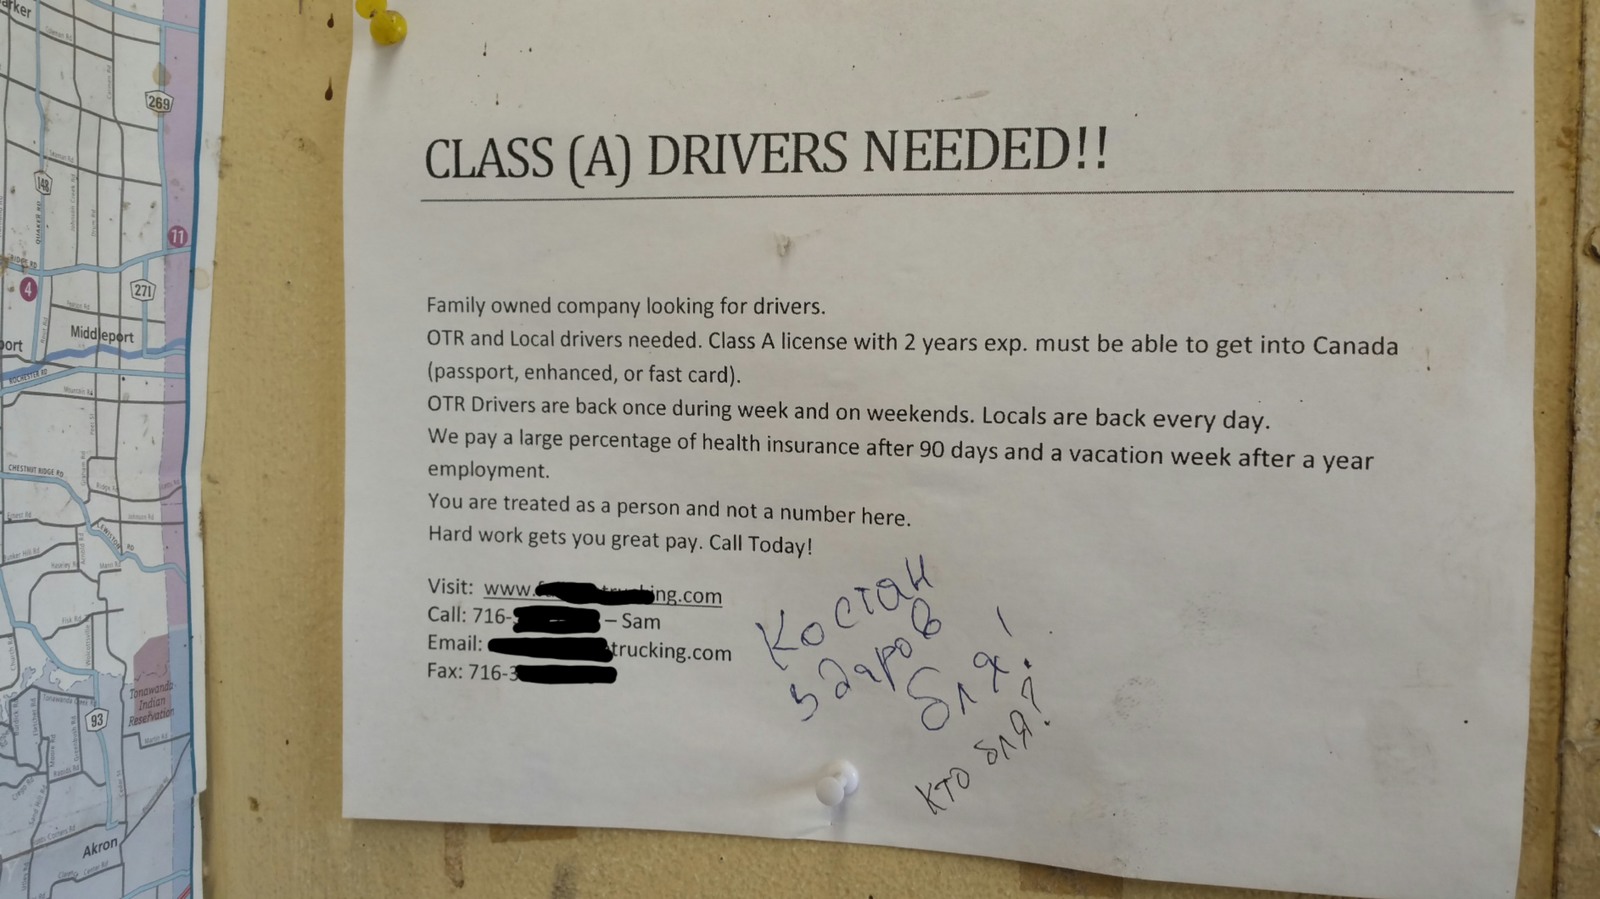 CLASS (A) DRIVERS NEEDED!!
Family owned company looking for drivers.
OTR and Local drivers needed. Class A license with 2 years exp. must be able to get into Canada
(passport, enhanced, or fast card).
OTR Drivers are back once during week and on weekends. Locals are back every day.
We pay a large percentage of health insurance after 90 days and a vacation week after a year
employment.
You are treated as a person and not a number here.
Hard work gets you great pay. Call Today!
Visit: www. ing.com
Call: 716- – Sam
Email: trucking.com
Fax: 716-3
Костян
здаров
бля!
кто бля?
269
148
QUAKER RD
11
4
271
Middleport
port
ROCHESTER RD
CHESTNUT RIDGE RD
LEWISTON RD
Tonawanda
Indian
Reservation
93
Akron